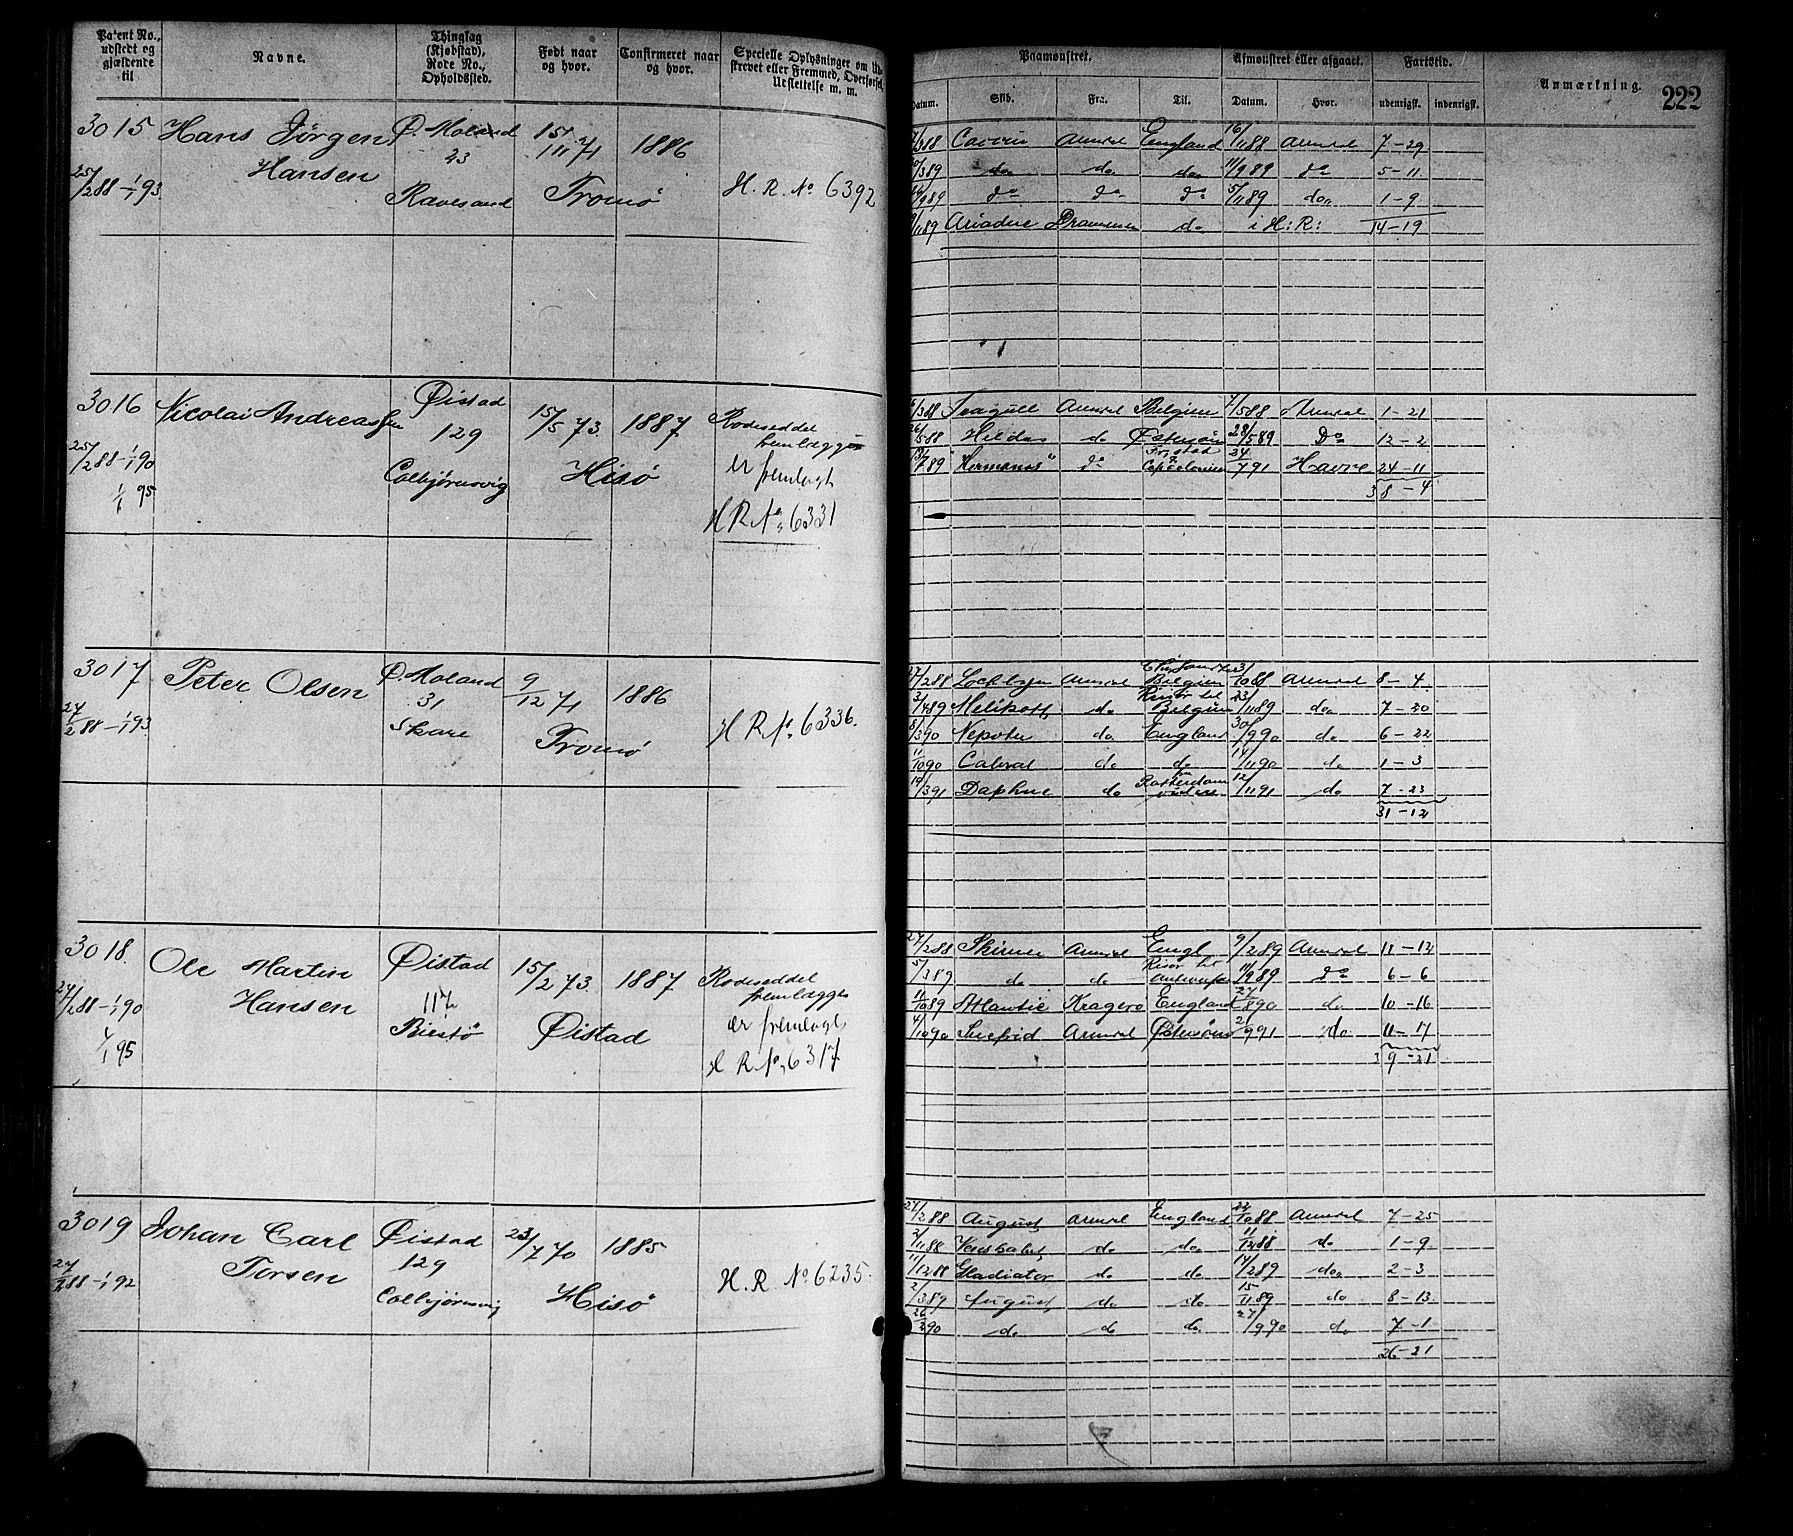 Patent No., udstedt og gjældende til
Navne.
Thinglag (Kjøbstad), Rode No., Opholdssted.
Født naar og hvor.
Confirmeret naar og hvor.
Specielle Oplysninger om
skrevet eller Fremmed, Overførsel, Udslettelse m. m.
3015 Hans Jørgen Ø. Moland 15/11 71 1886
Hansen 23
25/2 88 – 1/1 93 Ravesand Tromø H. R. No 6392
3016 Nicolai Andreassen Øistad 15/5 73. 1887. Rodeseddel
129 fremlægges
25/2 88 – 1/1 90 Colbjørnsvig Hisø er fremlagt
1/1 95 H R No 6331
3017 Peter Olsen Ø. Moland 9/12 71 1886
31
27/2 88 – 1/1 93 Skare Tromø H R No 6336.
3018. Ole Martin Øistad 15/2 73. 1887 Rodeseddel
Hansen 117 fremlægges
27/2 88 – 1/1 90 Biestø Øistad er fremlagt
1/1 95 H R No 6317
3019 Johan Carl Øistad 23/7 70 1885
Torsen 129
27/2 88 – 1/1 92 Colbjørnsvig Hisø H. R. No 6235.
Paamønstret.
Afmønstret eller afgaaet.
Fartstid.
Anmærkning. 222
Datum. Skib. Fra. Til. Datum. Hvor. udenrigsk. indenrigsk.
Arendal England 16/11 88 Arendal 7 – 29
do do do 11/9 89 do 5 – 11
do do do 5/11 89 do 1 – 9
Ariadne Drammen do i H: R: 14 – 19
Seagull Arendal Belgien 88 Arendal 1 – 21
26/5 88 Hilda do Østersøen 28/5 89 Do 12 – 2
Fristad
"Hermanos" do 24/7 91 Havre 24 – 11
38 – 4
27/2 88 Arendal Belgien 31/10 88 Arendal 8 – 4
Risør til
Melikoff do Belgien 23/11 89 do 7 – 20
8/3 90 Nepotu do England 30/9 90 do 6 – 22
11/10 90 Cabral do do 14/11 90 do 1 – 3
Rotterdam
19/3 91 Daphne do 12/11 91 do 7 – 23
31 – 12
27/2 88 Skirner Arendal Engl 9/2 89 Arendal 11 – 12
Risør til
5/3 89 do do Antwerpen 11/9 89 do 6 – 6
11/10 89 Atlantic Kragerø England 90 do 10 – 16
4/10 90 Arendal Østersøen 91 do 11 – 17
39 – 21
27/2 88 August Arendal England 22/10 88 Arendal 7 – 25
2/11 88 do do 11/12 88 do 1 – 9
11/12 88 Gladiator do do 14/2 89 do 2 – 3
2/3 89 August do do 15/11 89 do 8 – 13
26/2 90 do do do 27/9 90 do 7 – 1
26 – 21